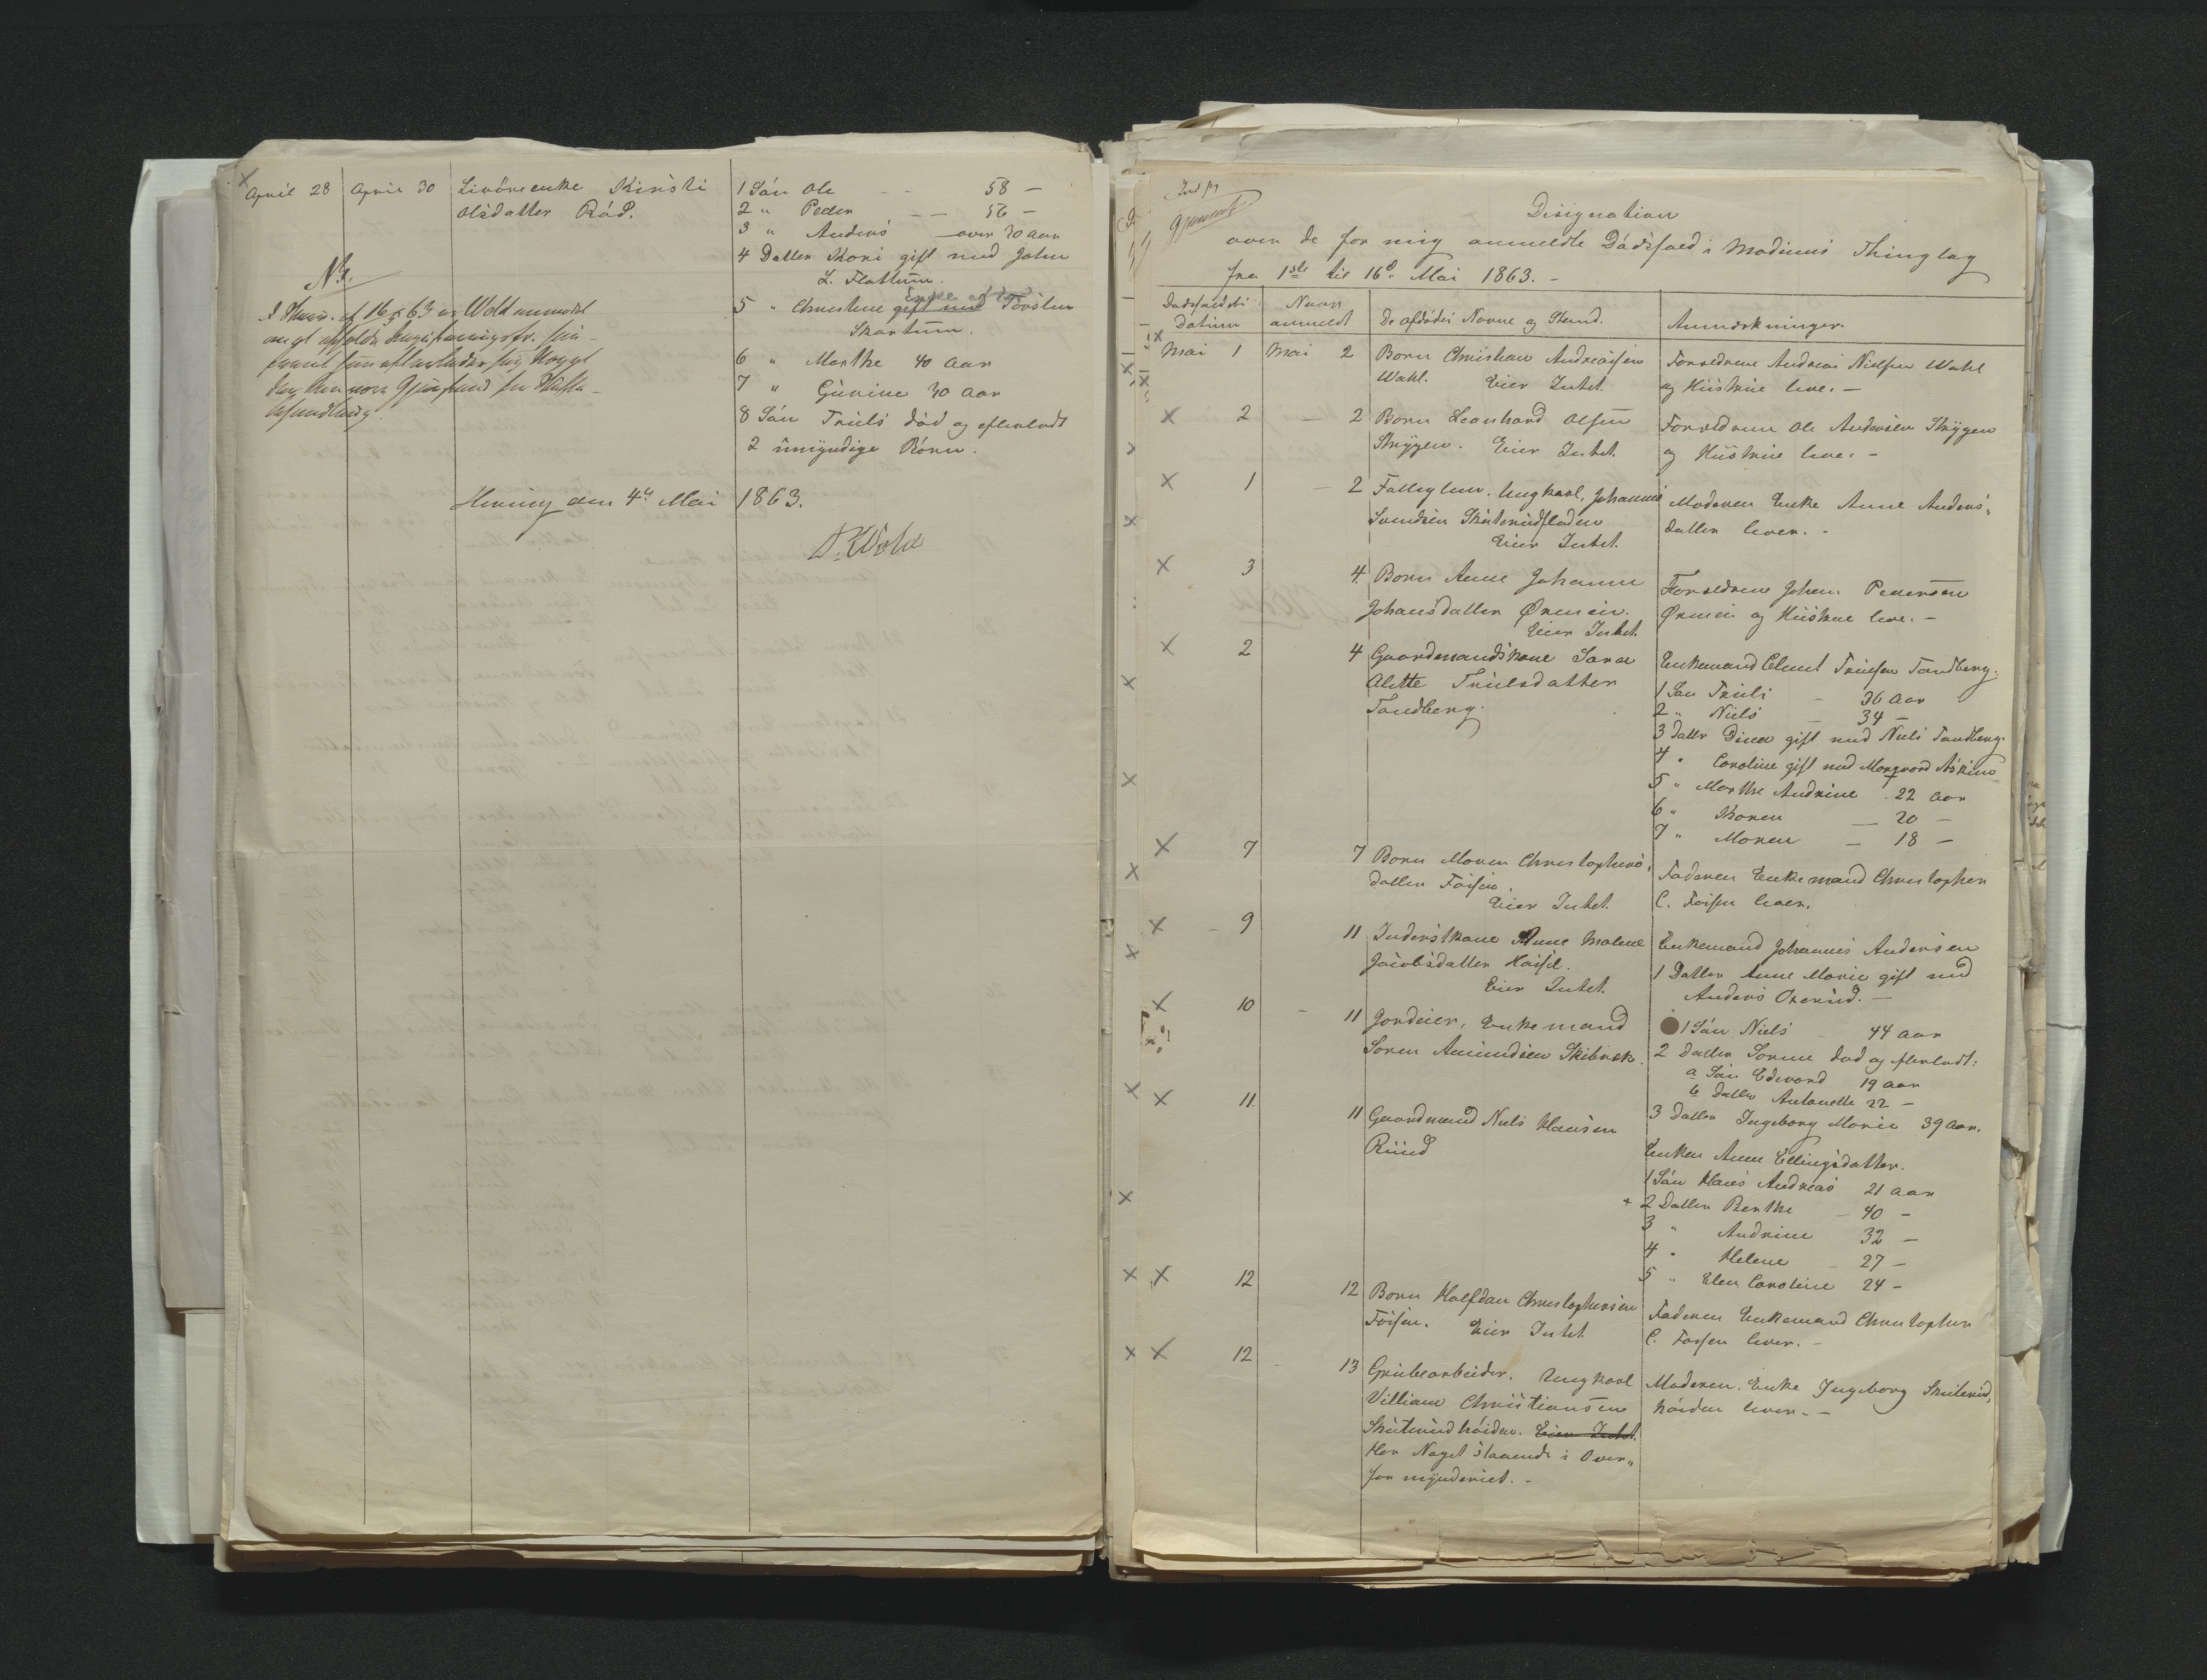 April 28 April 30 Livöreenke Kirsti
Olsdatter Råd.
1 Sön Ole - - 58 -
2 " Peder - - 56 -
3 " Anders - over 30 Aar
4 Datter Kari gift med John
L. Flattum.
5 " Christine gift med Torsten
Enke efter
Skartum.
6 " Marthe 40 Aar
7 " Gurine 30 Aar
8 Sön Truls död og efterladt
2 umyndige Börn.
NB.
Hering den 4de Mai 1863.
D. Wold
Designation
over de for mig anmeldte Dödsfald i Modums Thinglag
fra 1ste til 16de Mai 1863. -
Dødsfaldets Datum
Naar anmeldt
De afdödes Navne og Stand.
Anmærkninger.
Mai 1 Mai 2 Barn Christian Andreasen
Wahl. Eier Intet.
Forældrene Andreas Nielsen Wahl
og Hustrue leve. -
2 - 2 Barn Leonhard Olsen
Strygen. Eier Intet.
Forældrene Ole Andersen Strygen
og Hustrue leve. -
1 - 2 Fattiglem. Ungkarl, Johannes
Svendsen Skuterudfladen
Eier Intet.
Moderen Enke Anne Anders-
datter lever. -
3 4 Barn Anne Johanne
Johansdatter Ørmein.
Eier Intet.
Forældrene Johan Pedersen
Ørmein og Hustrue leve. -
2 4 Gaardmandskone Sara
Alette Trulsdatter
Tandberg.
Enkemand Clemet Trulsen Tandberg.
1 Sön Truls - 36 Aar
2 " Niels - 34 -
3 Datter Dina gift med Niels Tandberg.
4 " Caroline gift med Margvard Askim
5 " Marthe Andrine 22 Aar
6 " Karen - 20 -
7 " Maren - 18 -
7 7 Barn Maren Christophers-
datter Fossen.
Eier Intet.
Faderen Enkemand Christopher
C. Fossen lever.
9 11 Inderstkone Anne Malene
Jacobsdatter
Eier Intet.
Enkemand Johannes Andersen
1 Datter Anne Marie gift med
Anders -
10 - 11 Jordeier, Enkemand
Soren Amundsen Skibræk.
1 Sön Niels 44 Aar
2 Datter Sorine död og efterladt:
a Sön Edvard 19 Aar
b Datter Antonette 22 -
3 Datter Ingeborg Marie 39 Aar.
11 11 Gaardmand Niels Hansen
Ruud
Enken Anne Ellingsdatter.
1 Sön Hans Andreas 21 Aar
2 Datter Berthe - 40 -
3 " Andrine 32 -
4 " Helene 27 -
5 " Elen Caroline 24 -
12 12 Barn Halfdan Christophersen
Fossen. Eier Intet
Faderen Enkemand Christopher
C. Fossen lever. -
12 13 Grubearbeider. Ungkarl
Villiam Christiansen
Skuterudhöiden. Eier Intet.
Har Noget staaende i Over-
formynderiet. -
Moderen, Enke Ingeborg Skuterud-
höiden lever. -